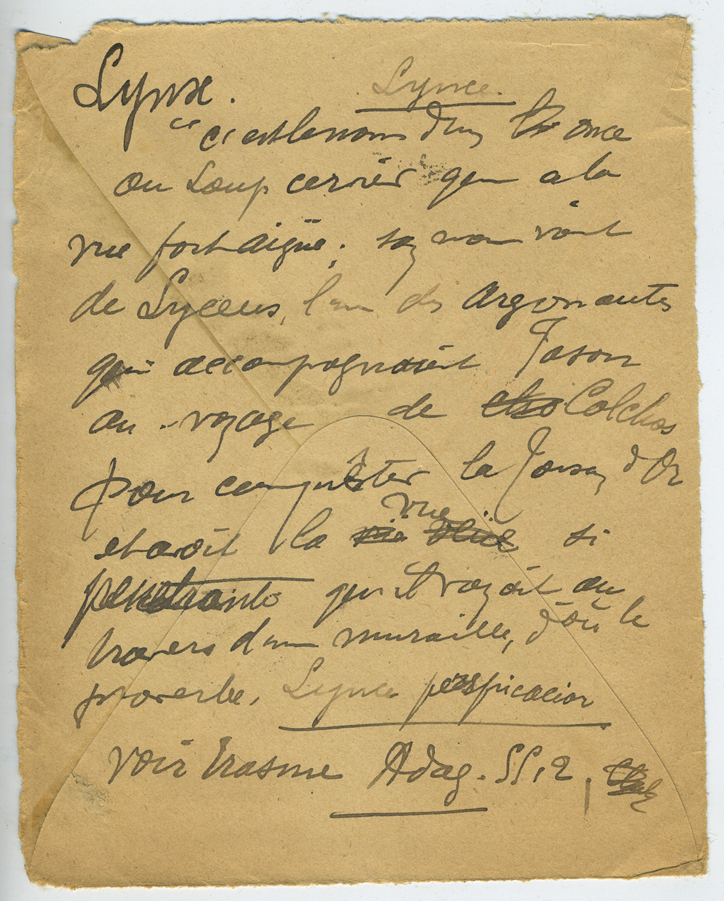 Lynx. Lynce.
"c'est le nom d'un once
ou Loup cervier qui a la
vue fort aigüe; son nom vient
de Lyceus, l'un des Argonautes
qui accompagnoient Jason
au voyage de Colchos
pour conquêter la Toison d'Or
et avoit la vue si
penetrante qu'il voyoit au
travers d'une muraille, d'où le
proverbe, Lynce perspicacior
voir Erasme Adag.